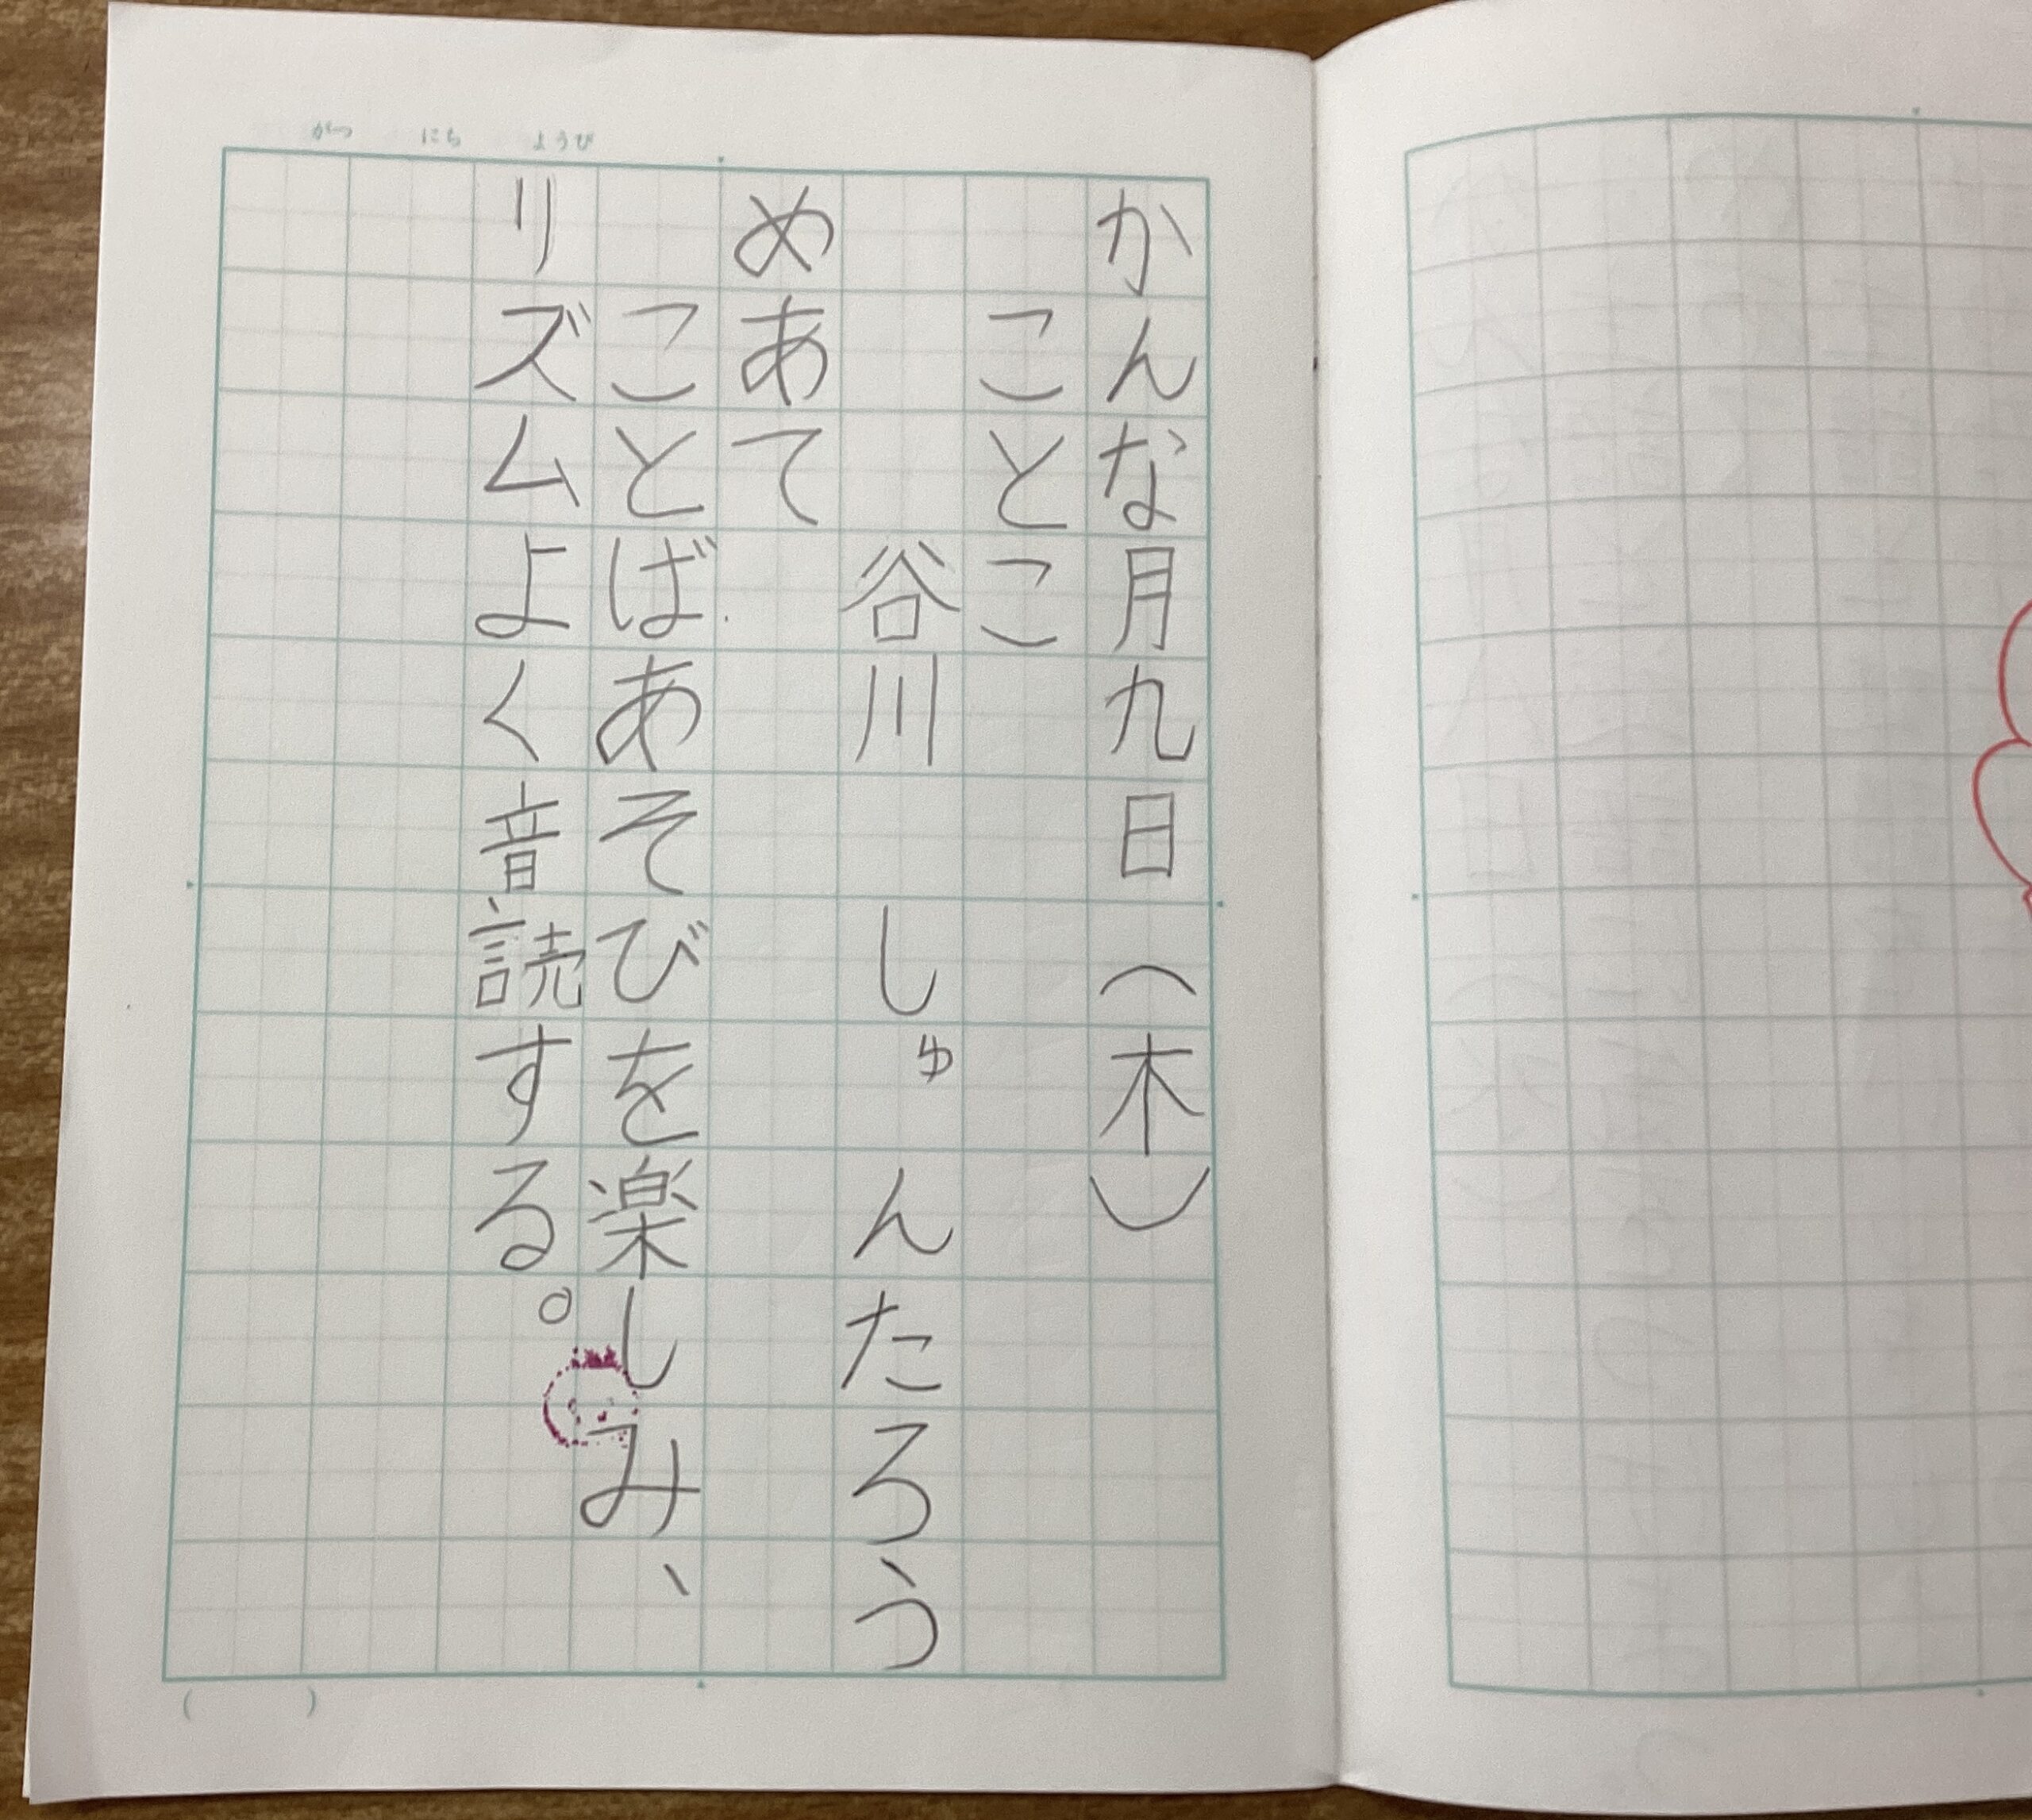 かんな月九日（木）
ことこ
谷川　しゅんたろう
めあて
ことばあそびを楽しみ、
リズムよく音読する。
がつ　にち　ようび
(　　)